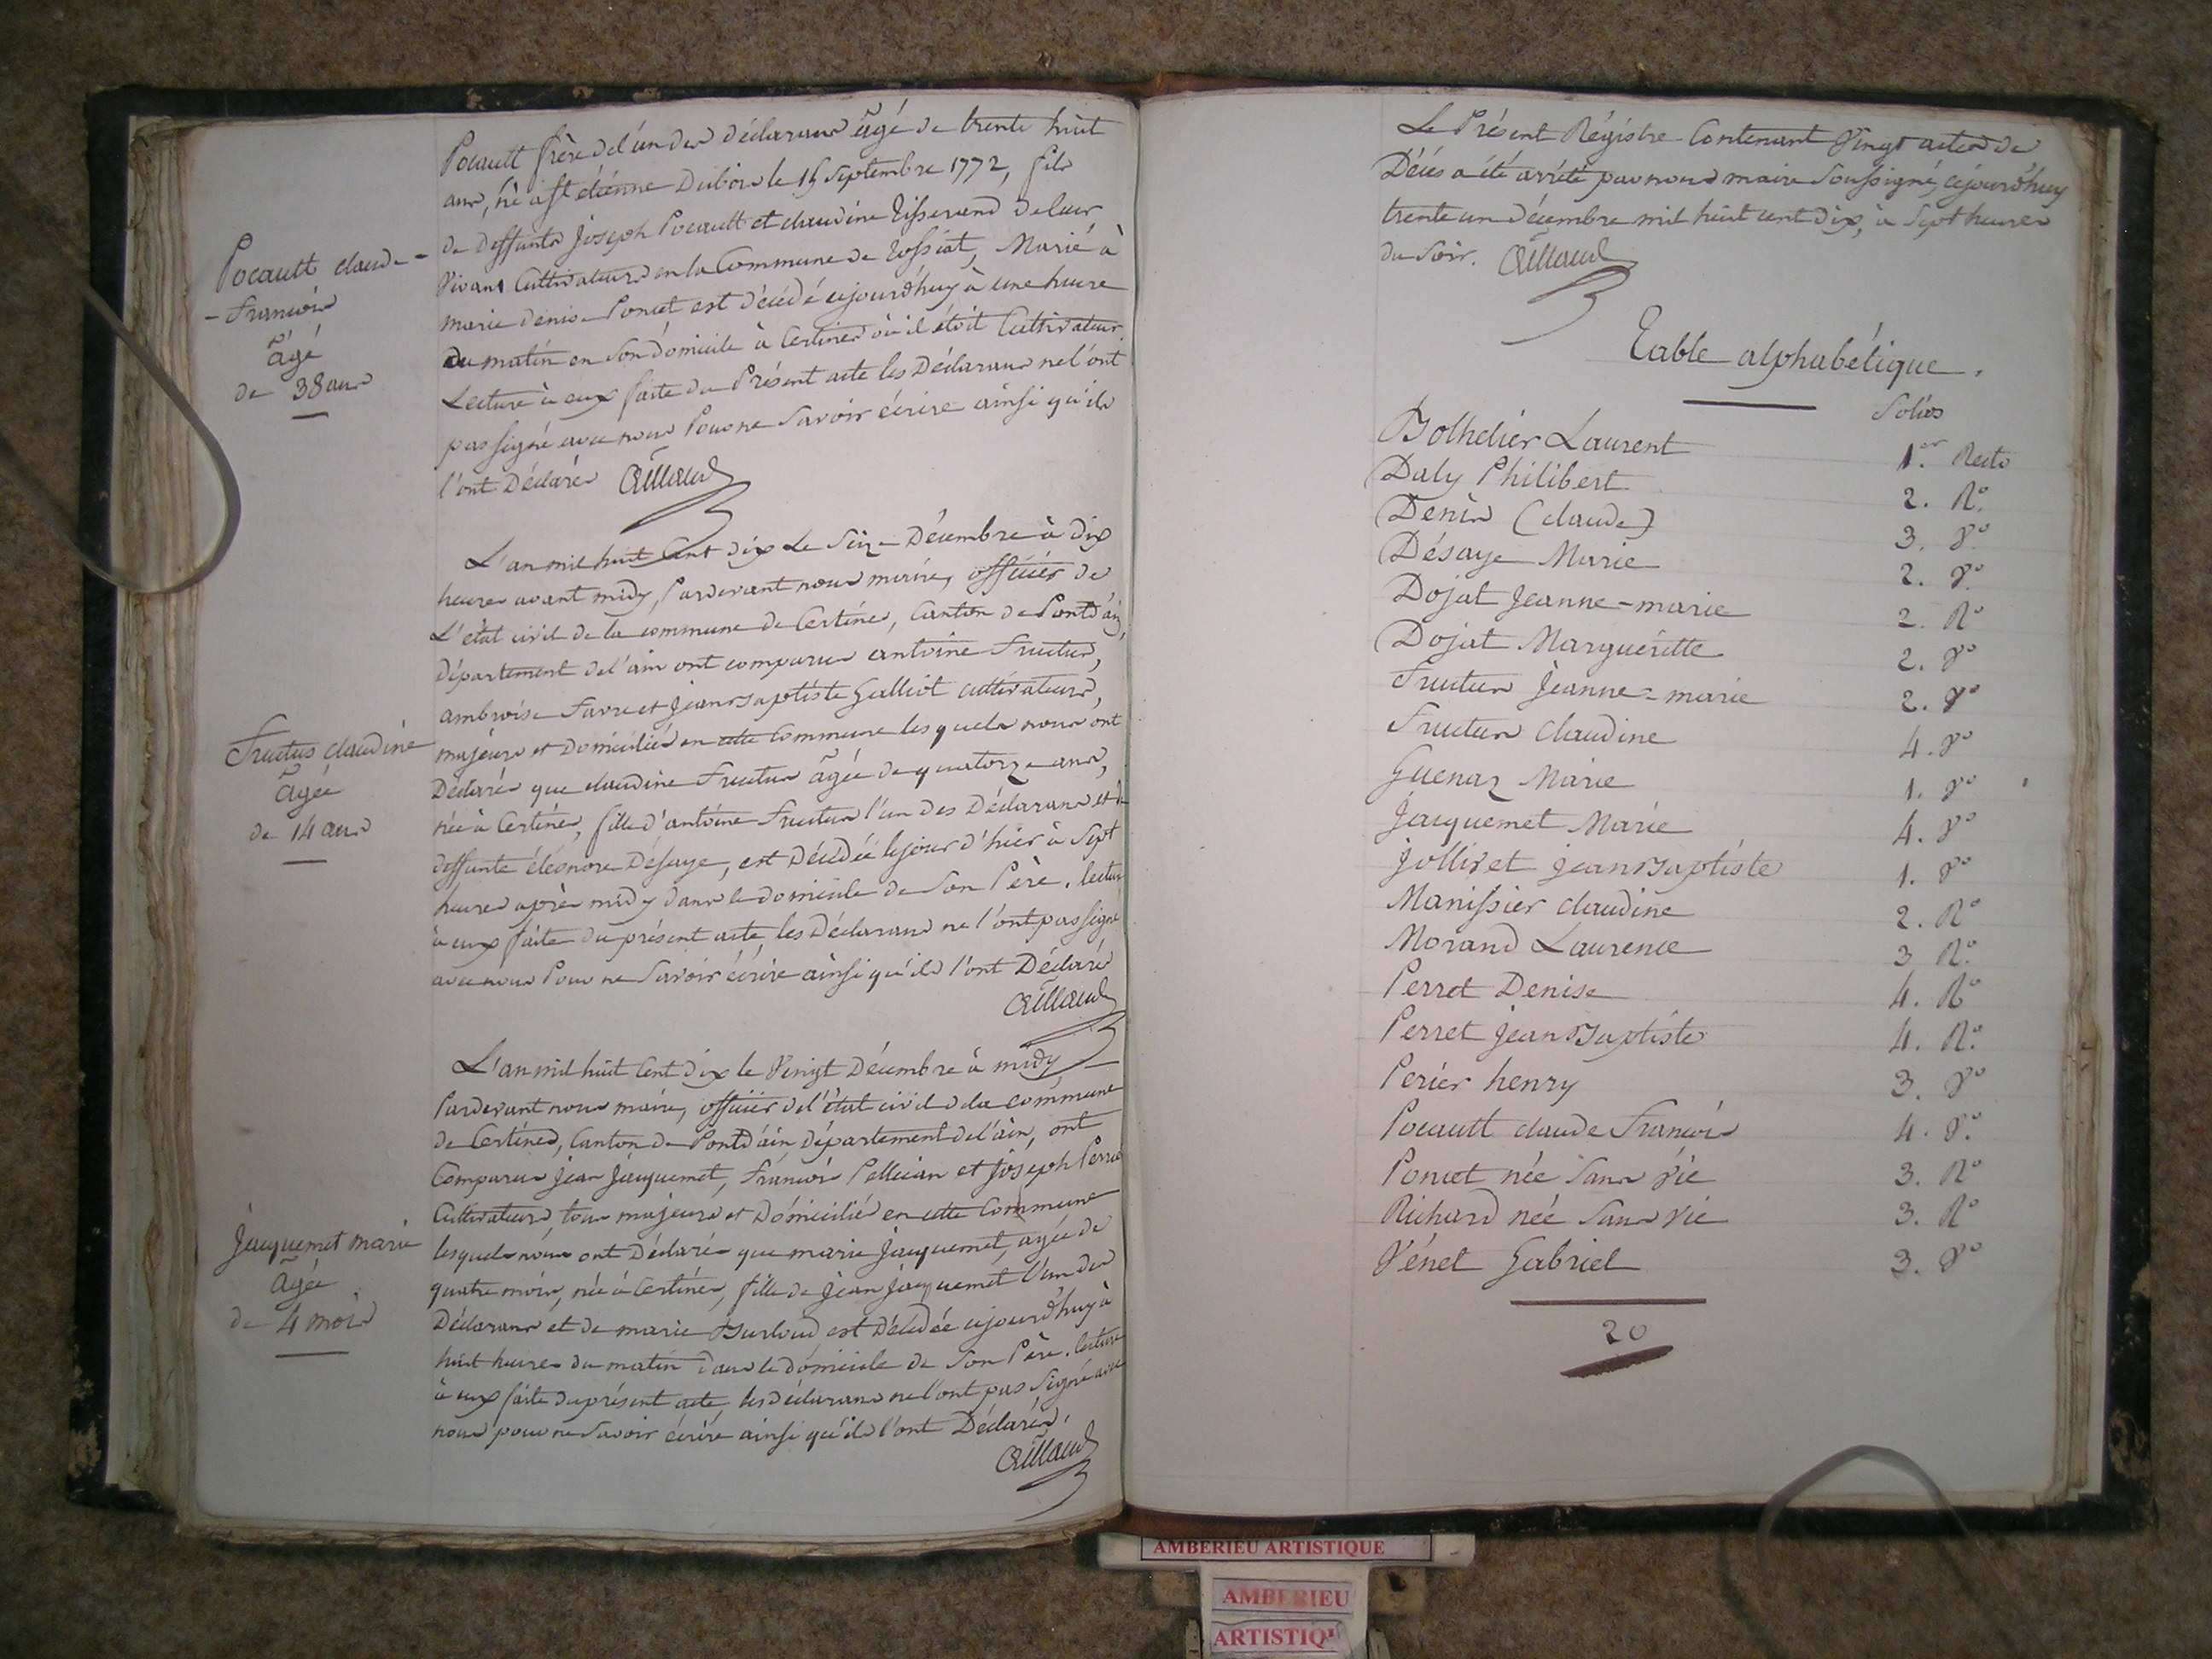 Pocault frère de l'un des déclarans âgé de trente huit
ans, né à St étienne Dubois le 15 Septembre 1772, fils
de deffunts Joseph Pocault et claudine Tisserand de leur
Vivant Cultivateurs en la Commune de Tossiat, Marié à
marie denise Poncet est décédé cejourd'huy à une heure
du matin en Son domicile à Certines où il étoit Cultivateur.
Lecture à eux faite du Présent acte les Déclarans ne l'ont
pas Signé avec nous Pour ne Savoir écrire ainsi qu'ils
l'ont Déclaré
Pocault claude-
-François
âgé
de 38 ans
L'an mil huit Cent dix Le Seize Décembre à dix
heures avant midy, Pardevant nous maire, officier de
L'état civil de la commune de Certines, Canton de Pontd'ain,
département de l'ain ont comparu antoine Fructus,
ambroise Favre et Jean Baptiste Galliot cultivateurs,
majeurs et Domiciliés en cette Commune lesquels nous ont
Déclaré que claudine Fructus âgée de quatorze ans,
née à Certines, fille d'antoine Fructus l'un des Déclarans et de
deffunte éléonore Désaye, est Décédée le jour d'hier à Sept
heures après midy dans le domicile de Son Père. lecture
à eux faite du présent acte, les Déclarans ne l'ont pas Signé
avec nous Pour ne Savoir écrire ainsi qu'ils l'ont Déclaré
Fructus claudine
âgée
de 14 ans
L'an mil huit Cent Dix le Vingt Décembre à midy
Pardevant nous maire, officier de l'état civil de la commune
de Certines, Canton de Pontd'ain, Département de l'ain, ont
Comparu Jean Jacquemet, François Pellician et Joseph Perret
Cultivateurs, tous majeurs et Domiciliés en cette Commune
lesquels nous ont Déclaré que marie Jacquemet, agée de
quatre mois, née à Certines, fille de Jean Jacquemet l'un des
Déclarans et de marie Burloud est Décédée cejourd'huy à
huit heures du matin Dans le domicile de Son Père. lecture
à eux faite du présent acte, les déclarans ne l'ont pas Signé avec
nous pour ne Savoir écrire ainsi qu'ils l'ont Déclaré.
Jacquemet marie
âgée
de 4 mois
Le Présent Régistre Contenant Vingt actes de
Décès a été arrêté par nous maire Soussigné, cejourd'huy
trente un décembre mil huit cent dix, à Sept heures
du Soir.
Table alphabétique.
Folios
Bolhelier Laurent 1.er Recto
Daly Philibert 2. Ro.
Denis (claude) 3. Vo.
Désaye Marie 2. Vo.
Dojat Jeanne-marie 2. Ro
Dojat Margueritte 2. Vo
Fructus Jeanne-marie 2. Vo
Fructus Claudine 4. Vo
Guenaz Marie 1. Vo
Jacquemet Marie 4. Vo
Jollivet Jean Baptiste 1. Vo
Manissier claudine 2. Ro
Morand Laurence 3 Ro.
Perret Denise 4. Ro
Perret Jean Baptiste 4. Ro.
Perier henry 3. Vo
Pocault claude François 4. Vo.
Poncet née Sans Vie 3. Ro
Richard née Sans vie 3. Ro
Vénet Gabriel 3. Vo
20
AMBERIEU ARTISTIQUE
AMBERIEU
ARTISTIQU